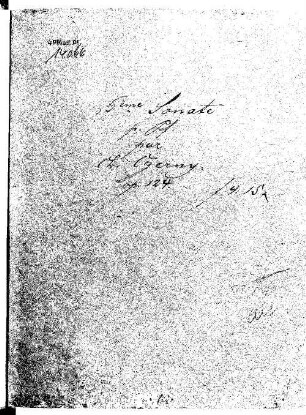 14066
5ème Sonate
p. Pf
par
Ch. Czerny.
Op. 124